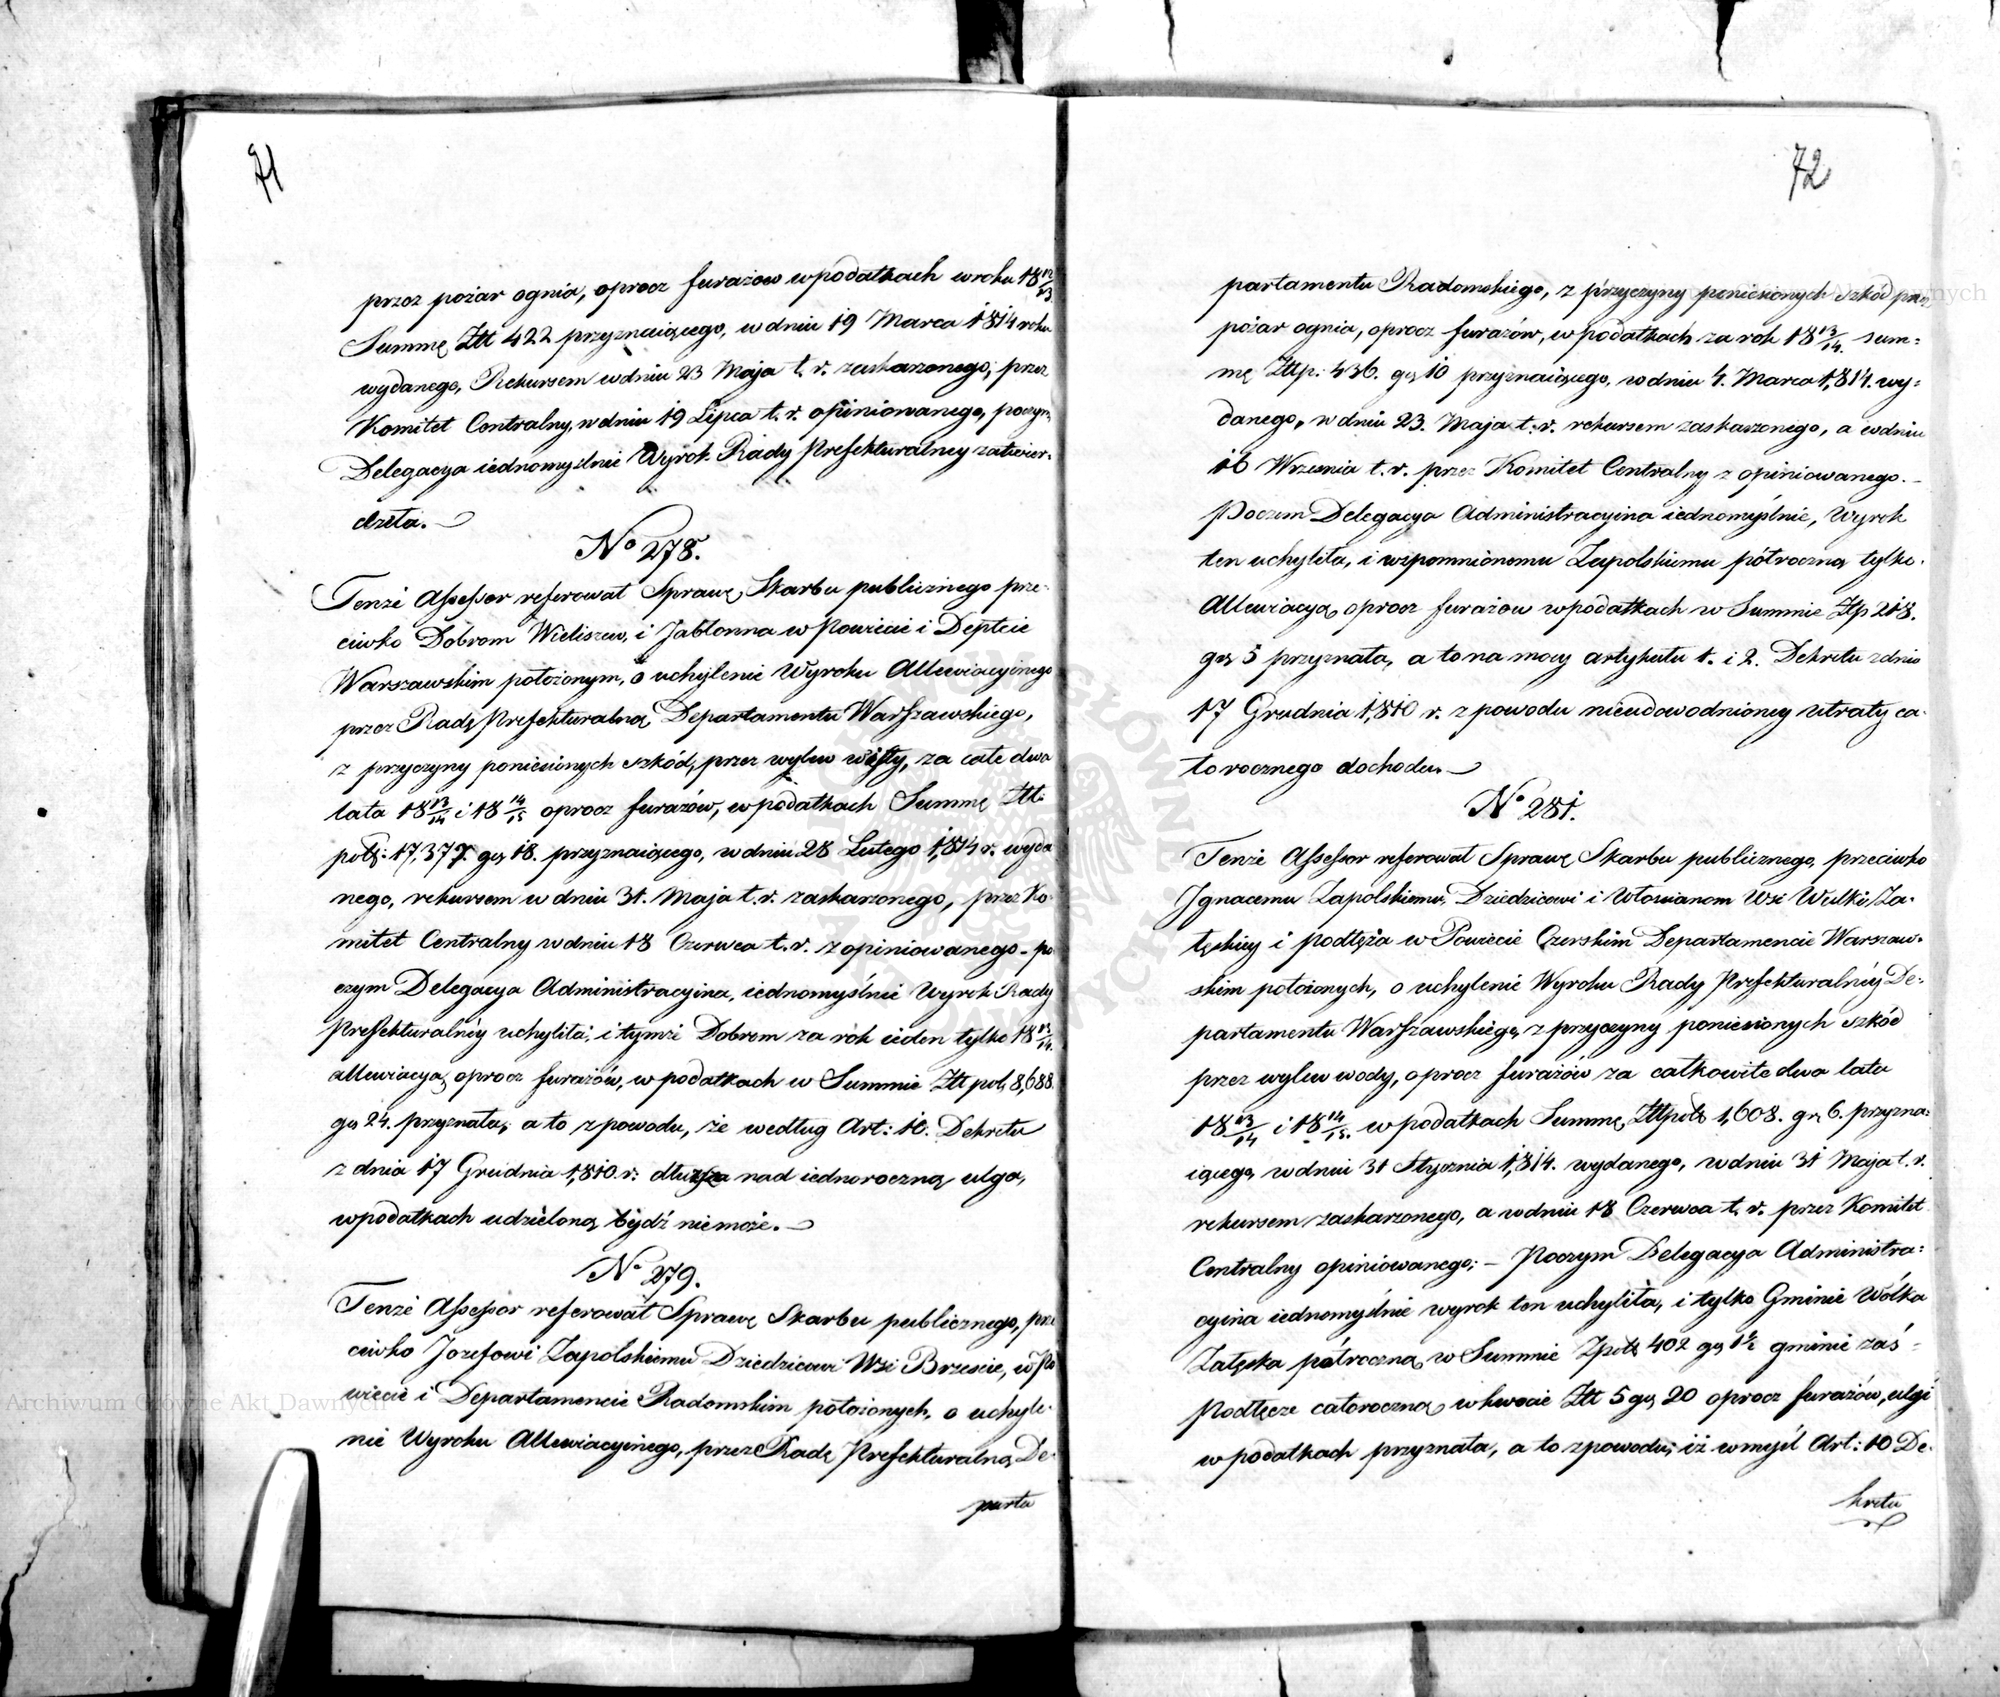 71
przez pożar ognia, oprocz furażow w podatkach w roku 18 12/13
Summę Złł 422 przyznaiącego, w dniu 19 Marca 1814 roku
wydanego, Rekursem w dniu 23 Maja t. r. zaskarzonego, przez
Komitet Centralny, w dniu 19 Lipca t. r. opiniowanego, poczym
Delegacya iednomyślnie Wyrok Rady Prefekturalney zatwier-
dziła.
No 278.
Tenże Assessor referował Sprawę Skarbu publicznego prze-
ciwko Dobrom Wieliszew, i Jabłonna w Powiecie i Deptcie
Warszawskim położonym, o uchylenie Wyroku Allewiacyinego
przez Radę Prefekturalną Departamentu Warszawskiego,
z przyczyny poniesionych szkód, przez wylew Wisły, za całe dwa
lata 18 13/14 i 18 14/15 oprocz furażów, w podatkach Summę Złł:
pols: 17,377. gr 18. przyznaiącego, w dniu 28 Lutego 1,814 r. wyda
nego, rekursem w dniu 31. Maja t. r. zaskarzonego, przez Ko-
mitet Centralny w dniu 18 Czerwca t. r. zopiniowanego - po
czym Delegacya Administracyina, iednomyślnie Wyrok Rady
Prefekturalnéy uchyliła, i tymże Dobrom za rok ieden tylko 18 13/14.
allewiacyą oprocz furażów, w podatkach w Summie Złł pol: 8,688.
gr 24. przyznała, a to z powodu, że według Art: 10. Dekretu
z dnia 17 Grudnia 1,810. r. dłuższa nad iednoroczną ulga,
w podatkach udzieloną bydź nie może.
No 279.
Tenże Assessor referował Sprawę Skarbu publicznego, prze
ciwko Jozefowi Zapolskiemu Dziedzicowi Wsi Brzeście, w Po
wiecie i Departamencie Radomskim położonych, o uchyle-
nie Wyroku Allewiacyinego, przez Radę Prefekturalną De-
parta
72
partamentu Radomskiego, z przyczyny poniesionych szkód przez
pożar ognia, oprocz furażów, w podatkach za rok 18 13/14. sum-
mę Złłp: 436. gr 10 przyznaiącego, w dniu 4. Marca 1,814. wy-
danego, w dniu 23. Maja t. r. rekursem zaskarzonego, a w dniu
16 Września t. r. przez Komitet Centralny zopiniowanego. -
Poczem Delegacya Administracyina iednomyślnie, Wyrok
ten uchyliła, i wspomnionemu Zapolskiemu półroczną tylko
Allewiacyą oprocz furażow w podatkach w Summie Złp 218.
gr 5 przyznała, a to na mocy artykułu 1. i 2. Dekretu z dnia
17 Grudnia 1,810 r. z powodu nieudowodnioney utraty ca-
łorocznego dochodu.
No 281.
Tenże Assessor referował Sprawę Skarbu publicznego, przeciwko
Ignacemu Zapolskiemu, Dziedzicowi i Włoscianom Wsi Wulki Za-
łęskiey i Podłęża w Powiecie Czerskim Departamencie Warszaw-
skim położonych, o uchylenie Wyroku Rady Prefekturalnéy De-
partamentu Warszawskiego, z przyczyny poniesionych szkód
przez wylew wody, oprocz furażów za całkowite dwa lata
18 13/14 i 18 14/15. w podatkach Summę Złłpols 1,608. gr 6. przyzna-
iącego, w dniu 31 Stycznia 1,814. wydanego, w dniu 31 Maja t. r.
rekursem zaskarzonego, a w dniu 18 Czerwca t. r. przez Komitet
Centralny opiniowanego; - Poczym Delegacya Administra-
cyina iednomyślnie wyrok ten uchyliła, i tylko Gminie Wólka
Załęska półroczną w Summie Złpols 402 gr 1½ gminie zaś -
Podłęcze całoroczną w kwocie Złł 5 gr 20 oprocz furażów, ulgi
w podatkach przyznała, a to z powodu, iż w myśl Art: 10 De-
kretu
Archiwum Główne Akt Dawnych